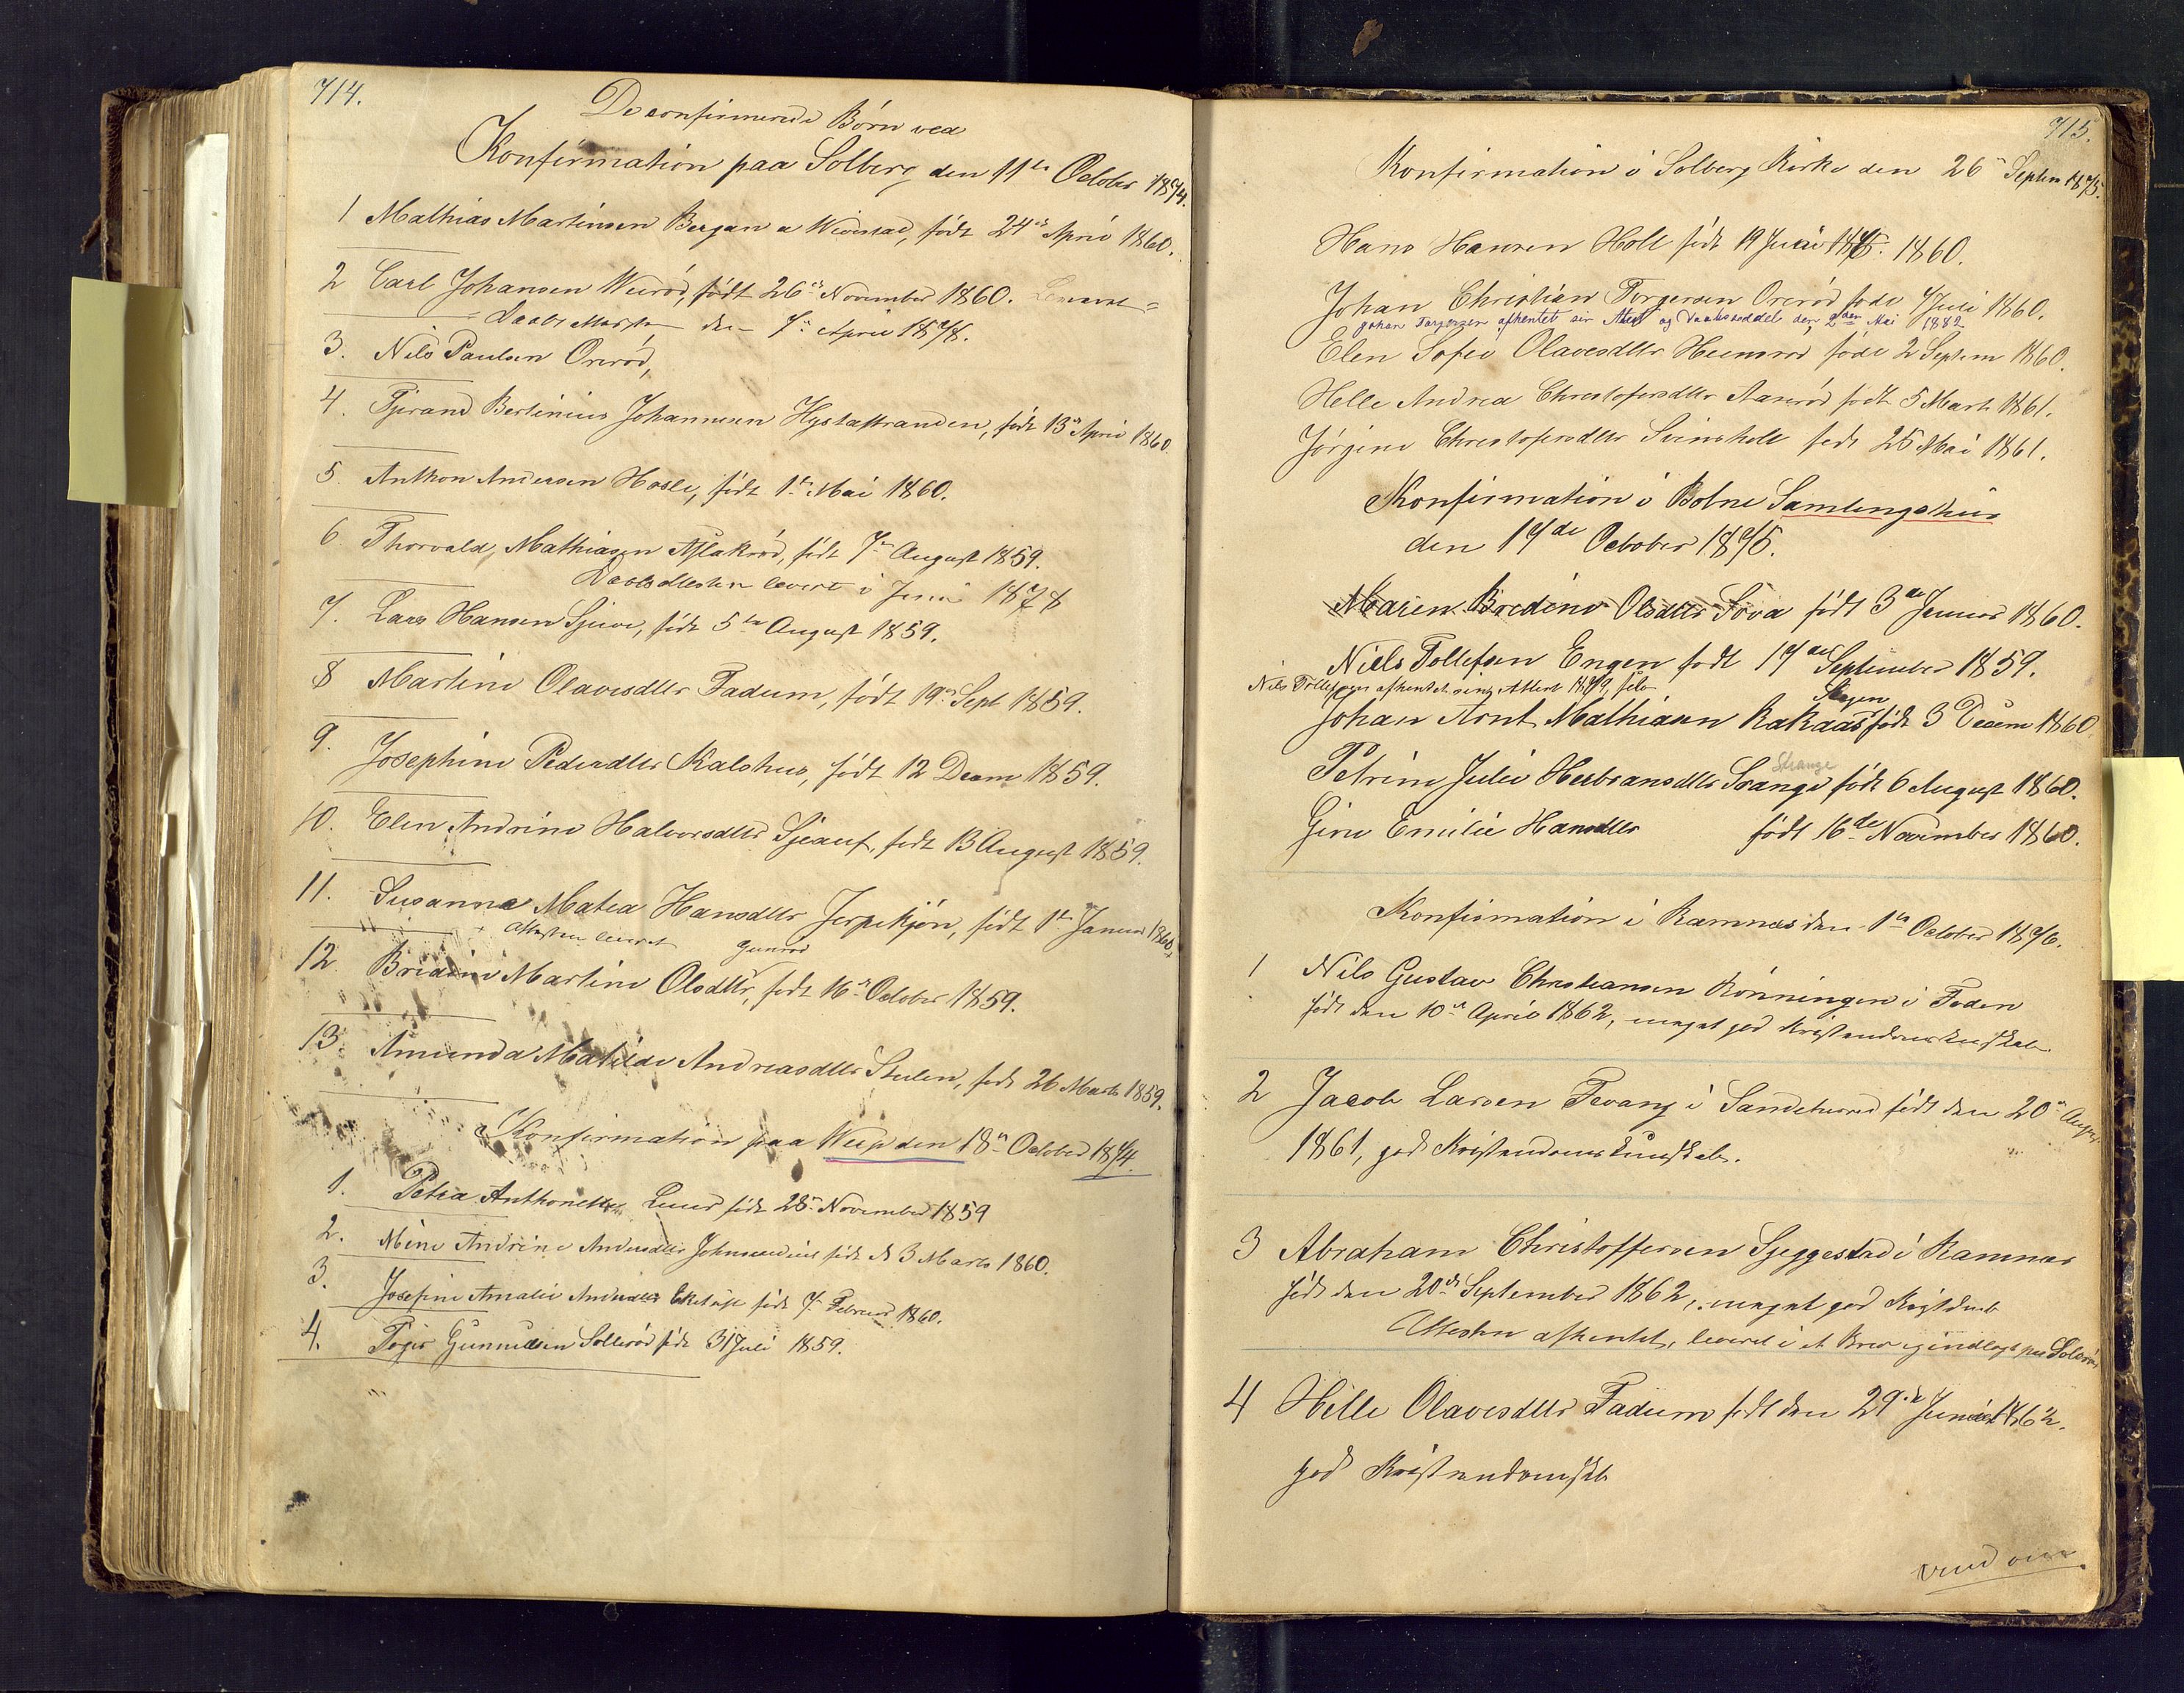 714.
De confirmerede Børn ved
Konfirmation paa Solberg den 11te October 1874.
1 Mathias Martinsen Bergan a Wivestad, født 24de April 1860.
2 Carl Johansen Weirød, født 26de November 1860.
Daabsattesten den 7de April 1878.
3. Nils Paulsen Orerød,
4. Tjerand Bertinius Johannesen Hystastranden, født 13de April 1860.
5. Anthon Andersen Hasle, født 1ste Mai 1860.
6. Thorvald Mathiasen Aslakrød, født 7de August 1859.
Daabsattesten levert i Juni 1878
7. Lars Hansen Sjue, født 5te August 1859.
8 Martine Olavesdtr Fadum, født 19de Sept 1859.
9. Josephine Pedersdtr Kalshus, født 12 Decem 1859.
10. Elen Andrine Halvorsdtr født 13 August 1859.
11. Susanne Matea Hansdtr Jerpekjøn, født 1ste Januar 1860
Attesten leveret
Gunrød
12. Bredine Martine Olsdtr, født 16de October 1859.
13. Amunda Matilde Andreasdtr Stulen, født 26 Marts 1859.
Konfirmation paa den 18de October 1874.
1. Petra Anthonette Lund født 28de November 1859
2. Mine Andrine Andersdtr født d 3 Marts 1860.
3. Josefine Amalie Andersdtr født 7. Februar 1860.
4. Toger Gunnildsen Sollerød født 31 Juli 1859.
715.
Konfirmation i Solberg Kirke den 26de Septem 1875.
Hans Hansen Holt født 19 Juni 1875. 1860.
Johan Christian Torgersen Orerød født 7 Juli 1860.
Johan Torgersen afhentet sin Attest og Daabsseddel den 2den Mai 1882
Elen Sofie Olavesdtr Heimrød født 2 Septem 1860.
Helle Andrea Christofersdtr Aarrød født 5 Marts 1861.
Jørgine Christofersdtr Svinsholt født 25 Mai 1861.
Konfirmation i Botne Samlingshus
den 17de October 1875.
Maren Bredine Olsdtr Søva født 3de Januar 1860.
Niels Tollefsen Engen født 17de September 1859.
Nils Tollefsen afhentet sin Attest 1879,
Skogen
Johan Arnt Mathiasen Rakaas født 3 Decem 1860
Strange
Petrine Julie Herbransdtr Srange født 6 August 1860.
Gine Emilie Hansdtr født 16de November 1860.
Konfirmation i Ramnæs den 1ste October 1876.
1 Nils Gustav Christiansen Rønningen i Foden
født den 10de April 1862, meget god Kristendomskundskab.
2 Jacob Larsen Fevang i Sandeherred født den 20de August
1861, god Kristendomskundskab.
3 Abraham Christoffersen Sjeggestad i Ramnæs
født den 20de September 1862, meget god Kristdmk
Attesten afhentet, leveret i et Brev og indlagt paa
4 Helle Olavesdtr Fadum født den 29de Juni 1862.
god Kristendomskb
vend om